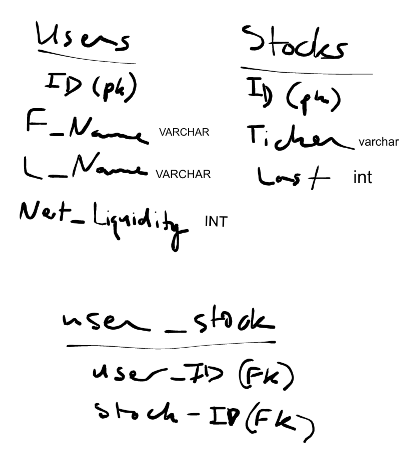 Users
ID (pk)
F_Name VARCHAR
L_Name VARCHAR
Net_Liquidity INT
Stocks
ID (pk)
Ticker varchar
Last int
user_stock
user_ID (FK)
stock-ID (FK)